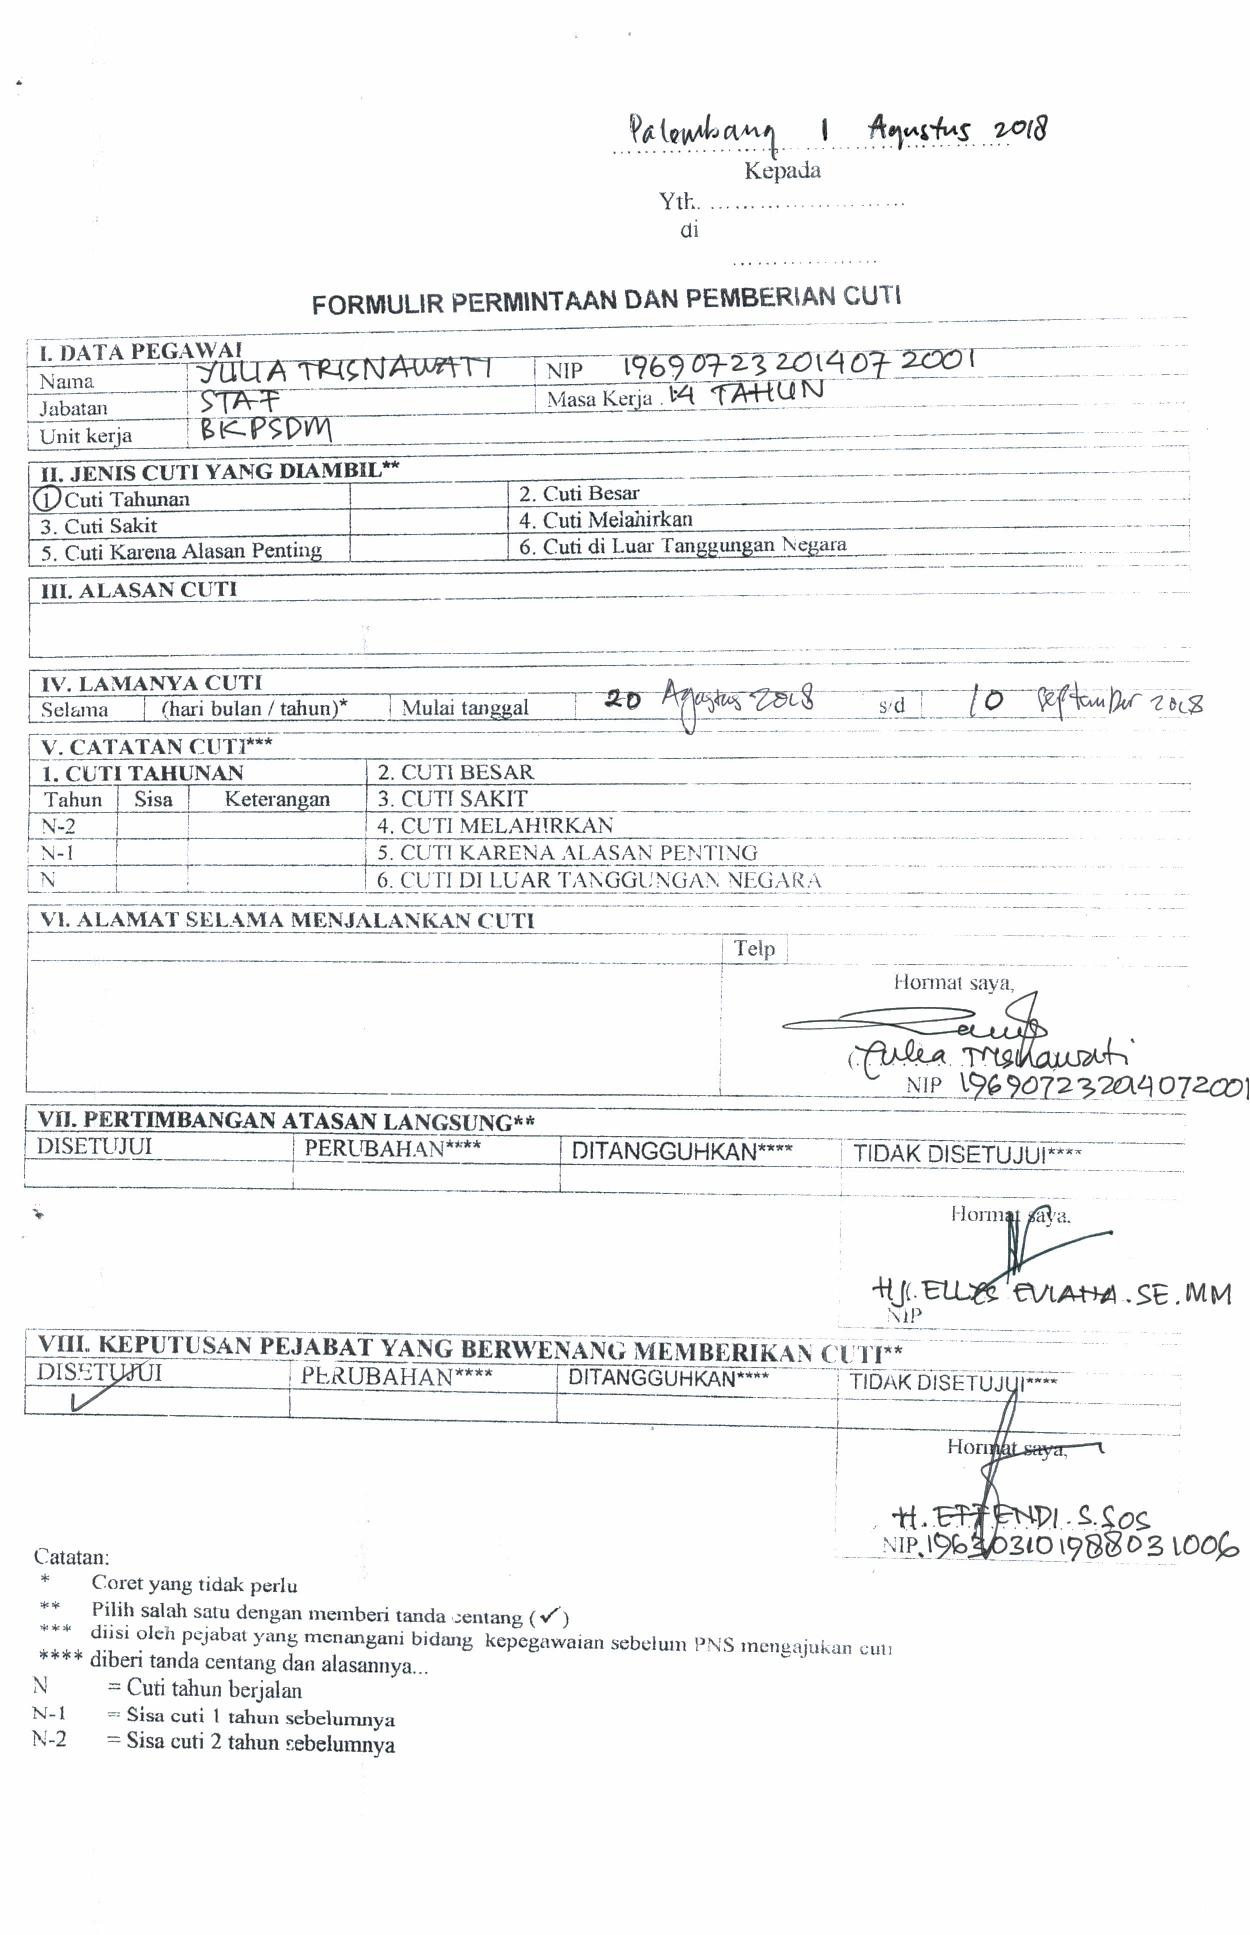 Palembang 1 Agustus 2018
Kepada
Yth. ........................
di
..................
FORMULIR PERMINTAAN DAN PEMBERIAN CUTI
I. DATA PEGAWAI
Nama YULIA TRISNAWATI NIP 196907232014072001
Jabatan STAF Masa Kerja 14 TAHUN
Unit kerja BKPSDM
II. JENIS CUTI YANG DIAMBIL**
1 Cuti Tahunan 2. Cuti Besar
3. Cuti Sakit 4. Cuti Melahirkan
5. Cuti Karena Alasan Penting 6. Cuti di Luar Tanggungan Negara
III. ALASAN CUTI
IV. LAMANYA CUTI
Selama (hari bulan / tahun)* Mulai tanggal 20 Agustus 2018 s/d 10 September 2018
V. CATATAN CUTI***
1. CUTI TAHUNAN 2. CUTI BESAR
Tahun Sisa Keterangan 3. CUTI SAKIT
N-2 4. CUTI MELAHIRKAN
N-1 5. CUTI KARENA ALASAN PENTING
N 6. CUTI DI LUAR TANGGUNGAN NEGARA
VI. ALAMAT SELAMA MENJALANKAN CUTI
Telp
Hormat saya,
(Yulia Trisnawati
NIP 196907232014072001
VII. PERTIMBANGAN ATASAN LANGSUNG**
DISETUJUI PERUBAHAN**** DITANGGUHKAN**** TIDAK DISETUJUI****
Hormat saya.
HJ. ELLYS EVIANA.SE.MM
NIP
VIII. KEPUTUSAN PEJABAT YANG BERWENANG MEMBERIKAN CUTI**
DISETUJUI PERUBAHAN**** DITANGGUHKAN**** TIDAK DISETUJUI****
✓
Hormat saya,
H. EFFENDI.S.SOS
NIP.196303101988031006
Catatan:
* Coret yang tidak perlu
** Pilih salah satu dengan memberi tanda centang (✓)
*** diisi oleh pejabat yang menangani bidang kepegawaian sebelum PNS mengajukan cuti
**** diberi tanda centang dan alasannya...
N = Cuti tahun berjalan
N-1 = Sisa cuti 1 tahun sebelumnya
N-2 = Sisa cuti 2 tahun sebelumnya